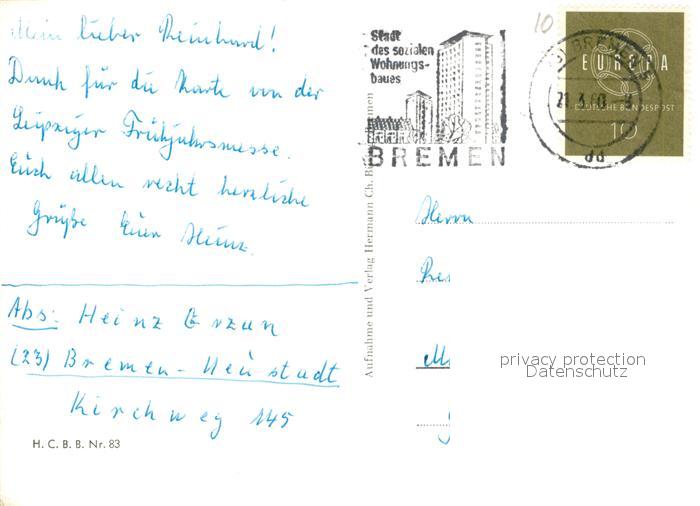 Mein lieber Reinhard!
Dank für die Karte von der
Leipziger Frühjahrsmesse.
Euch allen recht herzliche
Grüße Euer Heinz.
Abs: Heinz Erzun
(23) Bremen - Neustadt
Kirchweg 145
H. C. B. B. Nr. 83
Aufnahme und Verlag Hermann Ch. B
men
Stadt
des sozialen
Wohnungs-
baues
BREMEN
10
BREME
21.3.60
dd
EUROPA
DEUTSCHE BUNDESPOST
10
Herrn
privacy protection
Datenschutz